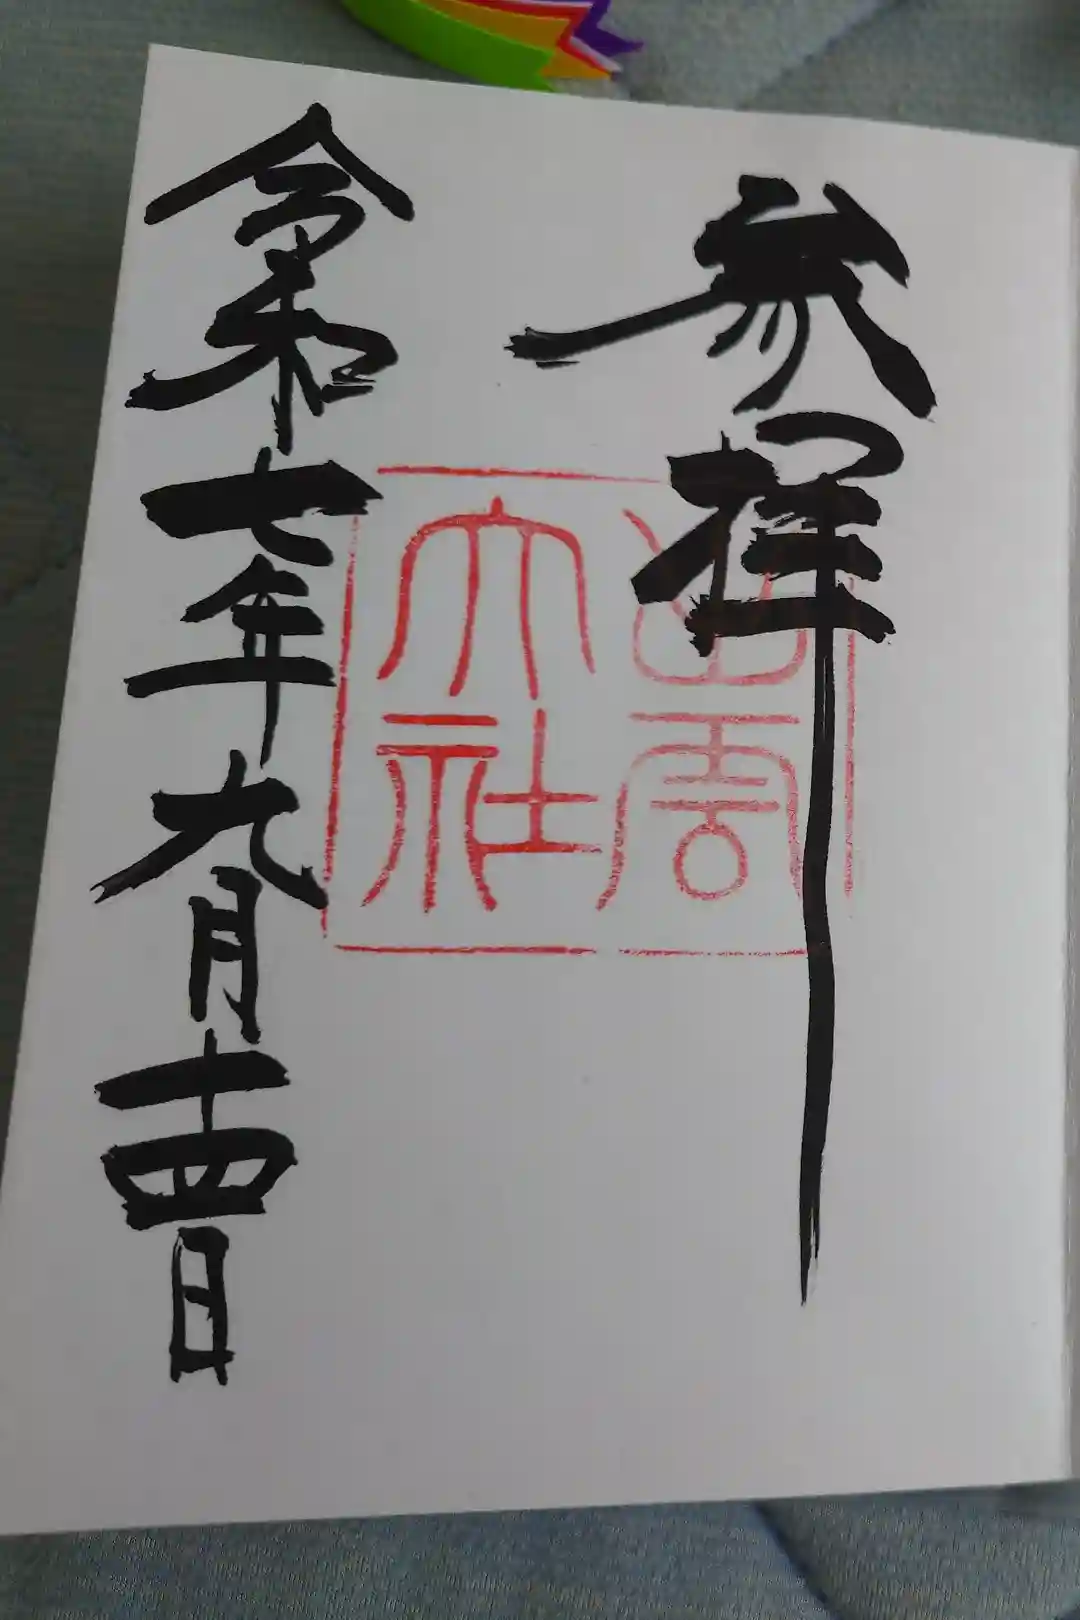 参拝
出雲
大社
令和七年九月十四日